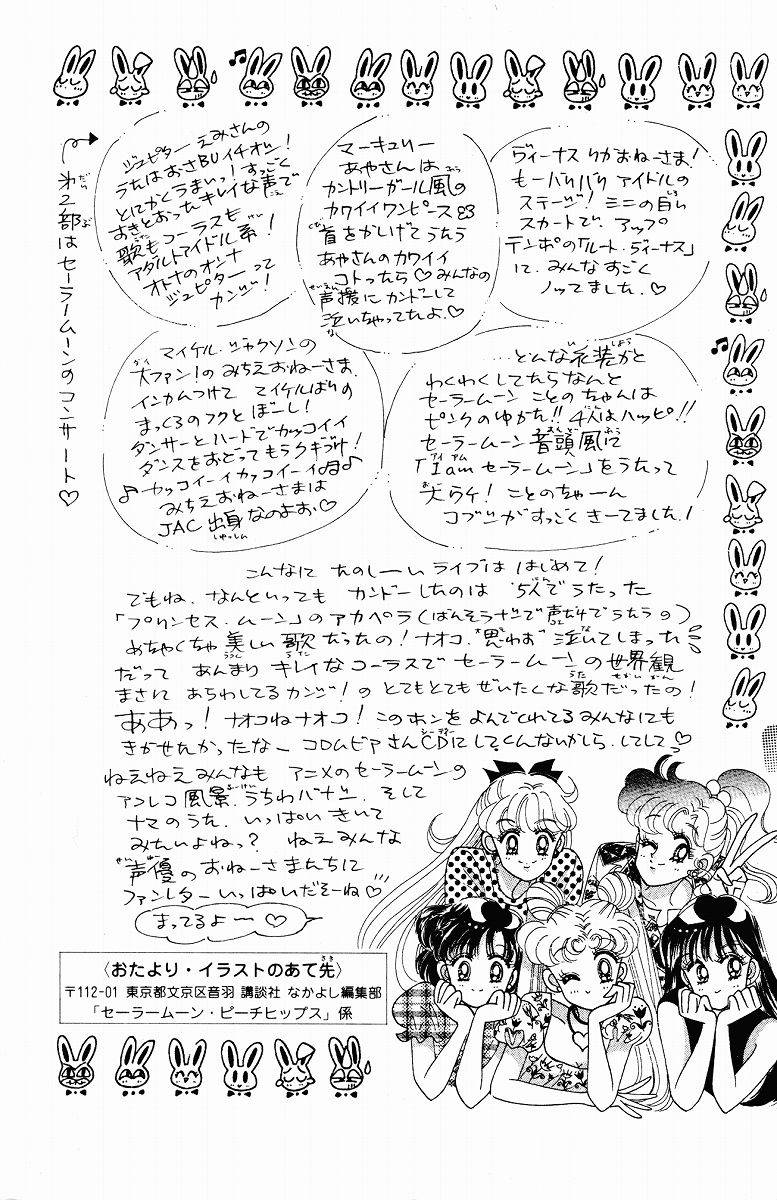 第2部はセーラームーンのコンサート♡
ジュピター えみさんの
うたはおさBUイチオシ!
とにかくうまいっ!すっごく
すきとおったキレイな声で
歌もコーラスも
アダルトアイドル系!
オトナのオンナ
ジュピターって
カンジ!
マーキュリー
あやさんは
カントリーガール風の
カワイイワンピース
首をかしげてうたう
あやさんのカワイイ
コトったら♡みんなの
声援にカンドーして
泣いちゃってたよ♡
ヴィーナス りかおねーさま!
もーバリバリアイドルの
ステージ!ミニの白い
スカートで、アップ
テンポの「ルート・ヴィーナス」
に、みんなすごく
ノッてました。♡
マイケル・ジャクソンの
大ファン!のみちえおねーさま、
インカムつけて マイケルばりの
まっくろのフクとぼーし!
ダンサーとハードでカッコイイ
ダンスをおどってもうクギづけ!
♪カッコイーイカッコイーイ♪
みちえおねーさまは
JAC出身なのよお♡
どんな衣装かと
わくわくしてたらなんと
セーラームーン ことのちゃんは
ピンクのゆかた!!4人はハッピ!!
セーラームーン音頭風に
「I am セーラームーン」をうたって
大ウケ! ことのちゃーん
コブシがすっごくきーてました!
こんなに たのしーい ライブは はじめて!
でもね、なんといっても カンドーしたのは 5人でうたった
「プリンセス・ムーン」のアカペラ(ばんそうナシで声だけでうたうの)
めちゃくちゃ 美しい歌だったの!ナオコ、思わず泣いてしまった
だって あんまり キレイなコーラスで セーラームーンの世界観
まさに あらわしてるカンジ!の とてもとてもぜいたくな歌だったの!
ああっ!ナオコねナオコ!このホンをよんでくれてるみんなにも
きかせたかったなー コロムビアさんCDにしてくんないかしら、してして♡
ねえねえみんなも アニメのセーラームーンの
アフレコ風景、うちわバナシ、そして
ナマのうた、いっぱいきいて
みたいよねっ? ねえみんな
声優のおねーさまたちに
ファンレターいっぱいだそーね♡
まってるよー♡
〈おたより・イラストのあて先〉
〒112-01 東京都文京区音羽 講談社 なかよし編集部
「セーラームーン・ピーチヒップス」係